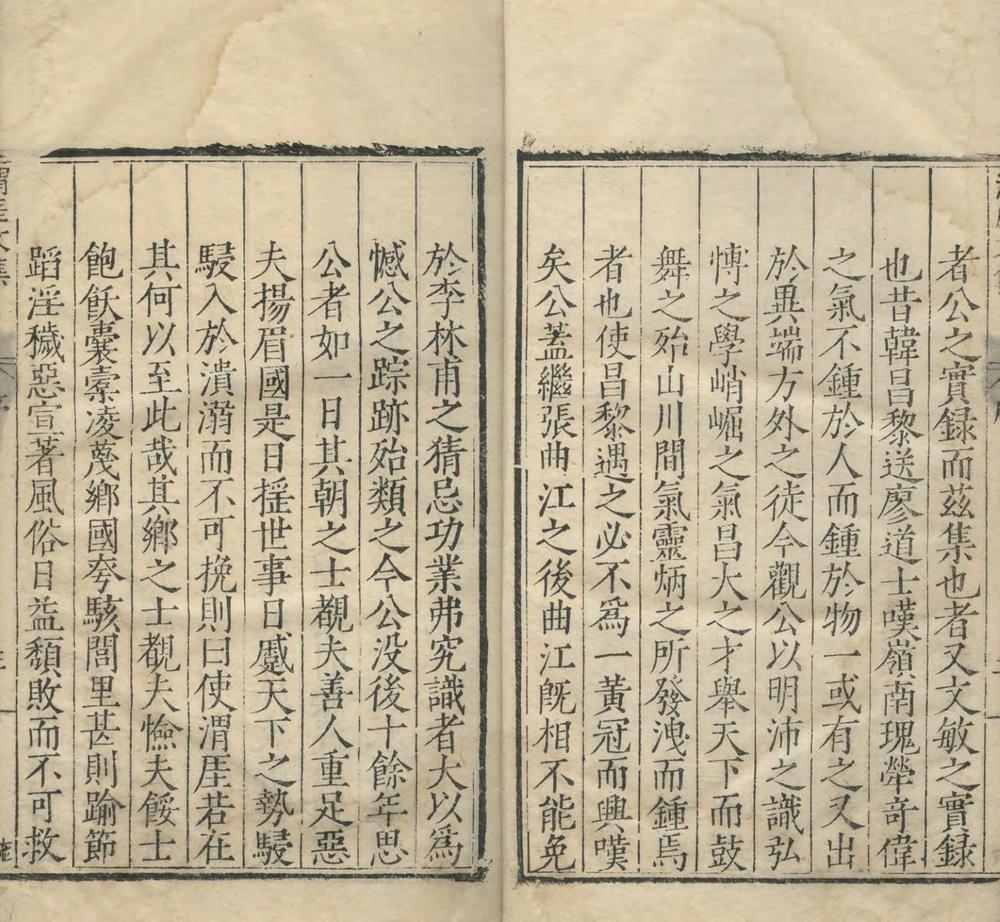 者公之實録而茲集也者又文敏之實録
也昔韓昌黎送廖道士嘆嶺南瑰犖竒偉
之氣不鍾於人而鍾於物一或有之又出
於異端方外之徒今觀公以明沛之識弘
愽之學峭崛之氣昌大之才舉天下而鼓
舞之殆山川間氣靈炳之所發洩而鍾焉
者也使昌黎遇之必不爲一黃冠而興嘆
矣公葢繼張曲江之後曲江旣相不能免
於李林甫之猜忌功業弗究識者大以爲
憾公之踪跡殆類之今公没後十餘年思
公者如一日其朝之士覩夫善人重足惡
夫揚眉國是日揺世事日蹙天下之勢駸
駸入於潰溺而不可挽則曰使渭厓若在
其何以至此哉其鄉之士覩夫憸夫餒士
飽飫囊槖凌蔑鄉國夸駭閭里甚則踰節
蹈淫穢惡宣著風俗日益頹敗而不可救
渭厓文集